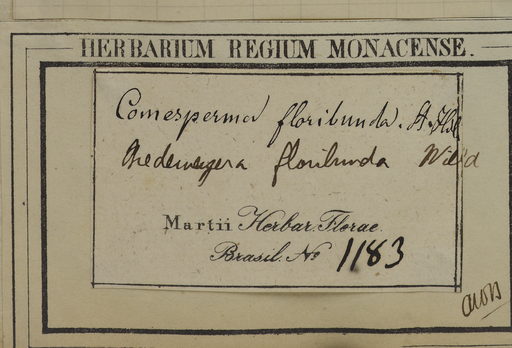 HERBARIUM REGIUM MONACENSE.
Comesperma floribunda. St. Hil
Bredemeyera floribunda Willd
Martii Herbar. Florae
Brasil. No 1183